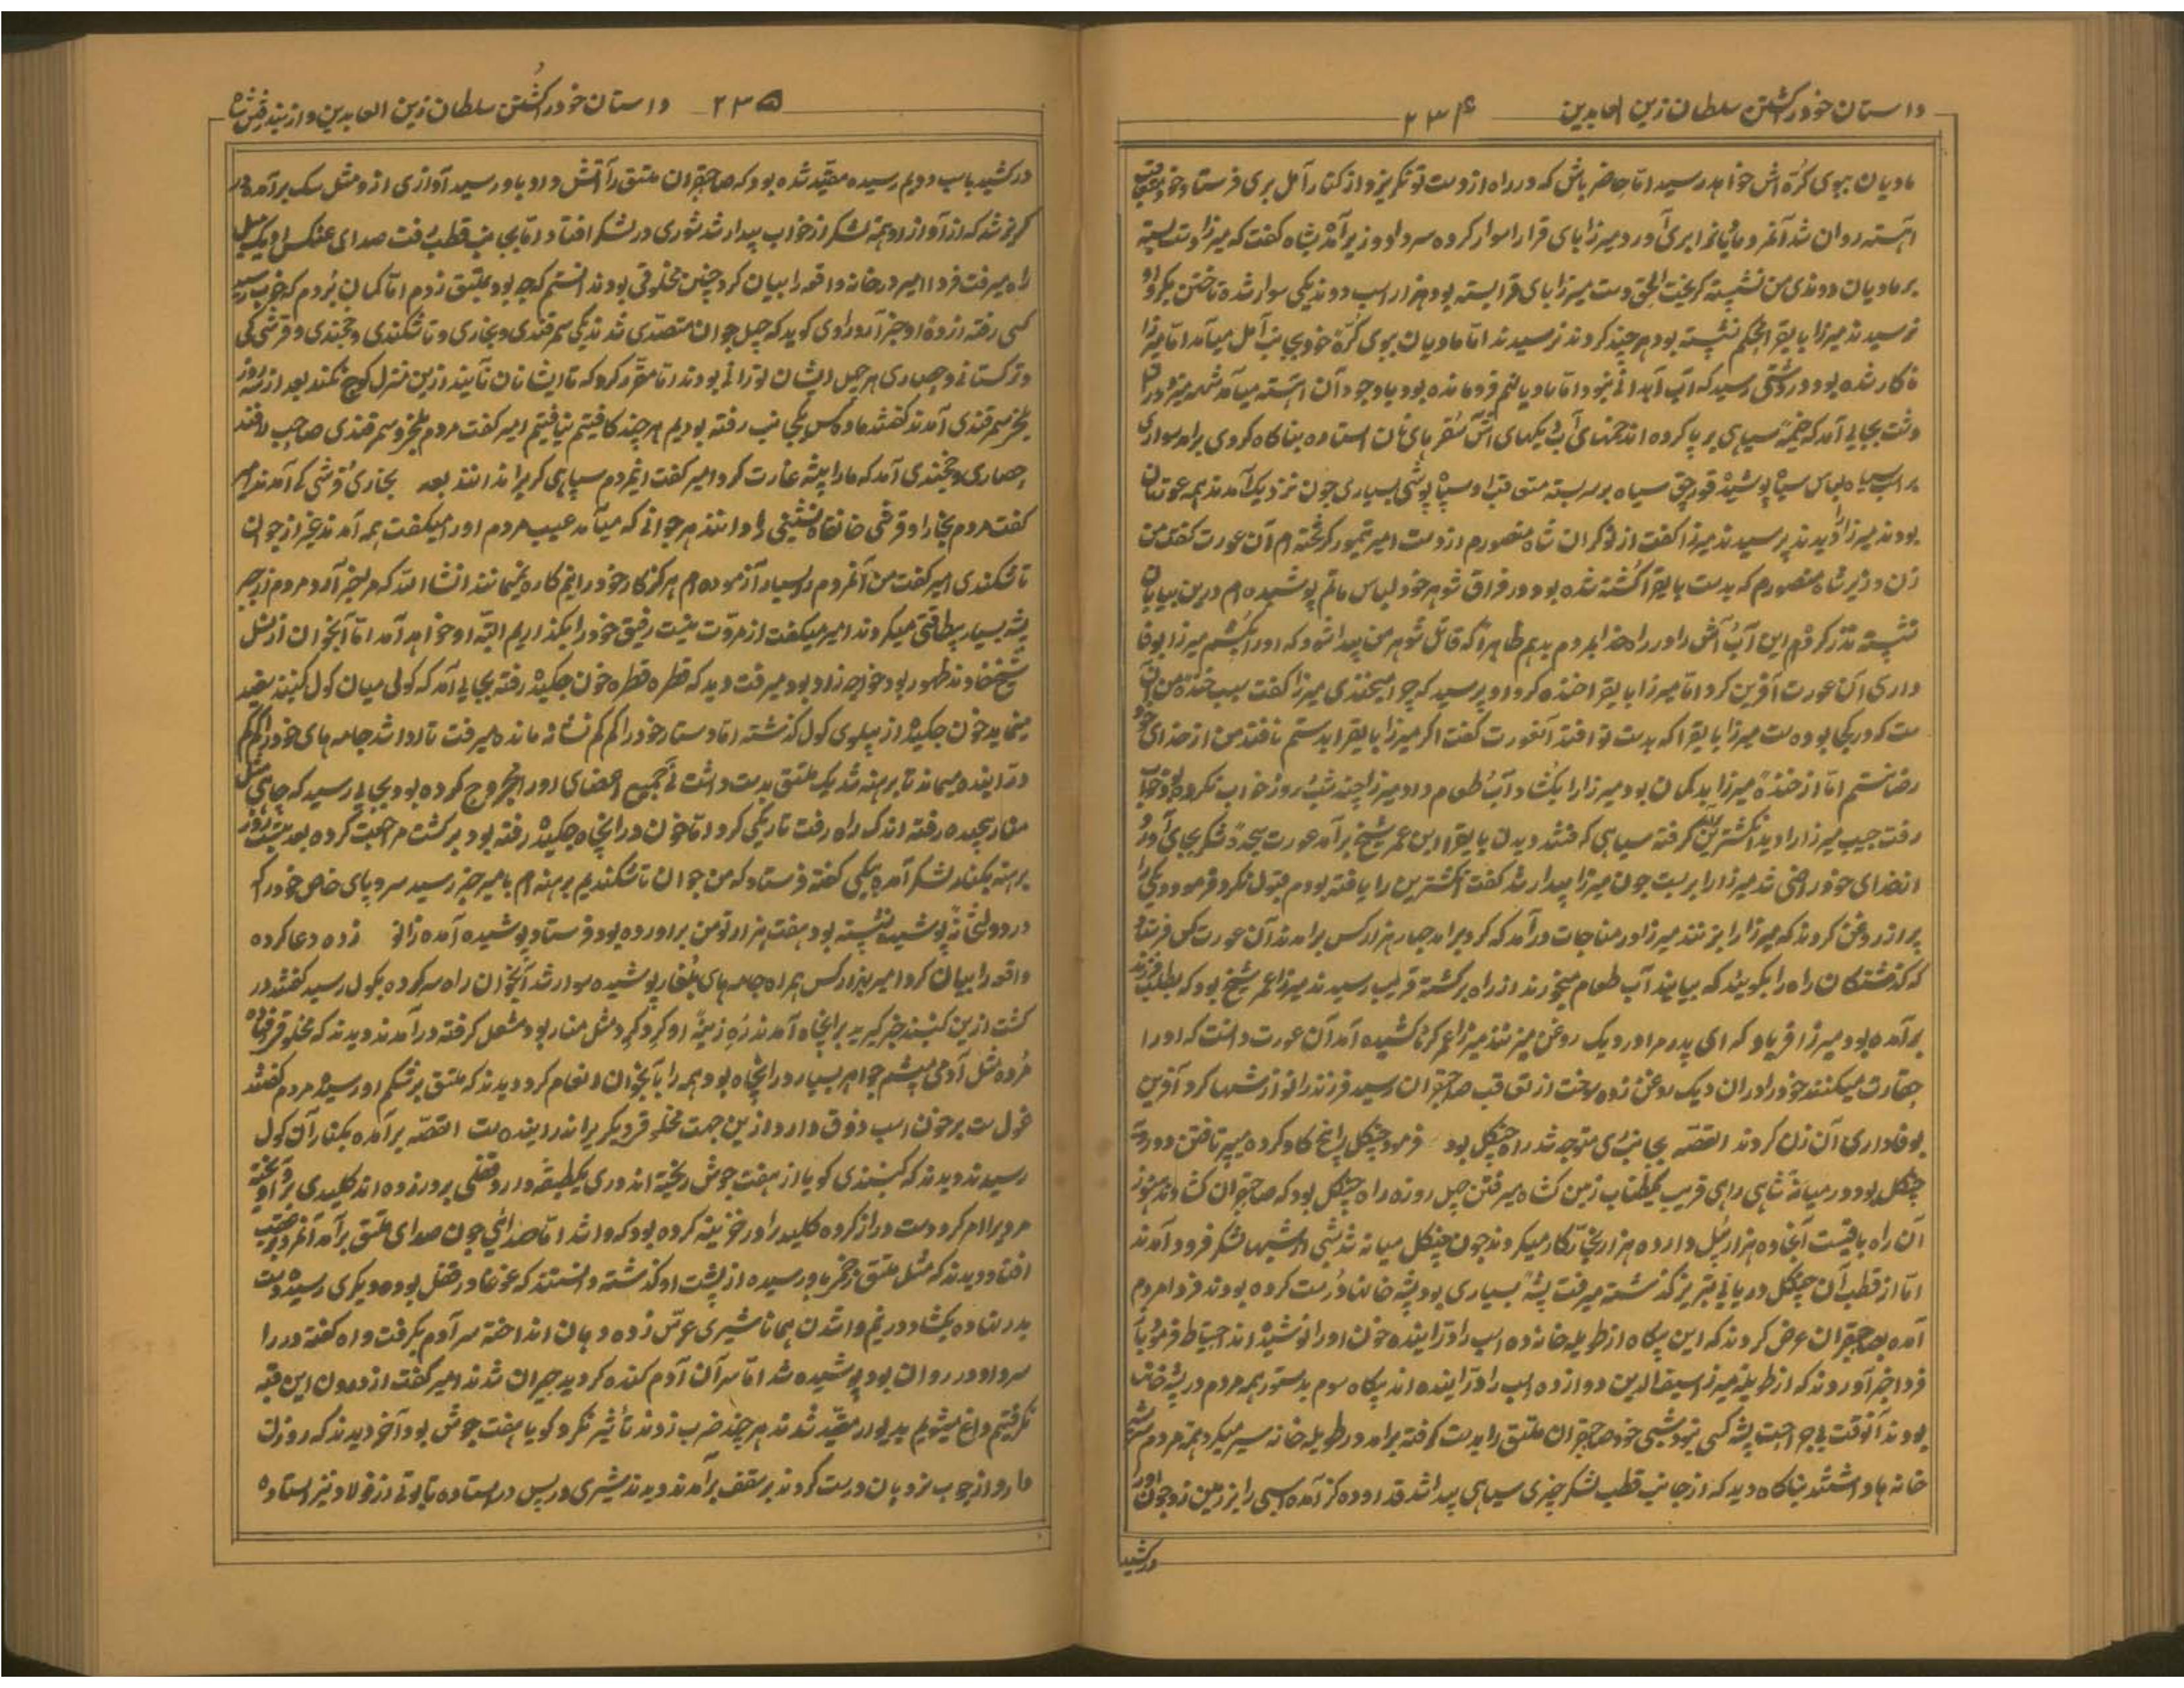 داستان خودر اکشتن سلطان زین العابدین ۲۳۴
مادیان ببوی کرّه اش خواهد رسید اما حاضر باش که در راه از دست تو نکریزد از کنار آمل بری فرستاد خود بعقب
آهسته روان شد آنمرد مادیانرا بری آورد میرزا بای قرارا سوار کرده سرداو وزیر آمد بشاه کفت که میرزا دست بسته
بر مادیان دوندی من نشسته کریخت الحق دست میرزا بای قرا بسته بود هزار اسب دوندیکی سوار شده تاختن بکرد او
نرسیدند میرزا بایقرا محکم نشسته بود هر چند کردند نرسیدند اما مادیان ببوی کرّهٔ خود بجانب آمل میآمد اما میرزا
ناکار شده بود در دشتی رسید که آب آبدانی نبود اما مادیانهم فرومانده بود باوجود آن آهسته میآمد
دشت بجایی آمد که خیمهٔ سیاهی برپا کرده اند خمهای آب دیکهای آش سفرهای نان استاده بناکاه کردی برآمد سواری
بر اسب سیاه لباس سیاه پوشیده قورچق سیاه بر سر بسته سیاه پوشی بسیاری چون نزدیک آمدند همه عورتان
بودند میرزا را دیدند پرسیدند میرزا کفت از نوکران شاه منصورم از دست امیر تیمور کریخته ام آن عورت کفت من
زن وزیر شاه منصورم که بدست بایقرا کشته شده بود در فراق شوهر خود لباس ماتم پوشیده ام درین بیابان
نشسته نذر کردم این آب آش را در راه خدا بمردم بدهم ظاهرا که قاتل شوهر من پیدا شود که اورا بکشم میرزا بوفا
داری آن عورت آفرین کرد اما میرزا بایقرا خنده کرد او پرسید که چرا میخندی میرزا کفت سبب خندهٔ من آن
ست که در کجا بوده ست میرزا بایقرا که بدست تو افتد آنعورت کفت اکر میرزا بایقرا بدستم نافتد من از خدای خود
رضا نستم اما از خندهٔ میرزا بدکمان بود میرزا را بکشاد آب طعام داد میرزا چند شب روز خواب نکرده بود خواب
رفت جیب میرزا را دید انکشترین کرفته سیاهی کفتند دیدن بایقرا ابن عمر شیخ برآمد عورت سجدهٔ شکر بجای آورد
از خدای خود راضی شد میرزا را بر بست چون میرزا بیدار شد کفت انکشترین را یافته بودم قبول نکرد فرمود دیکی را
پر از روغن کردند که میرزا را پرنند میرزا در مناجات درآمد که کرد برآمد چهار هزار کس برآمدند آن عورت کس فرستاد
که کذشتکان راه را بکویند که بیایند آب طعام بخورند از راه برکشته قریب رسیدند میرزا عمر شیخ بود که بطلب فرزند
برآمده بود میرزا فریاد که ای پدر مرا در دیک روغن میزنند میرزا عمر کرنا کشیده آمد آن عورت دانست که اورا
حقارت میکنند خودرا در آن دیک روغن زده سوخت از تعاقب صاحبقران رسید فرزند را نوازشها کرد آفرین
بوفاداری آن زن کردند القصه بجانب ری متوجه شد راه جنکل بود فرمود جنکل را نخ کاو کرده میبر تافتن دو رویه
جنکل بود در میانهٔ شاهی راهی قریب یکطناب زمین کشاه میرفتن چهل روزه راه جنکل بود که صاحبقران کشادند هنوز
آن راه باقیست آنجا ده هزار پل دارد ده هزار بخارا کار میکردند چون جنکل میانه شد شبی در شبها لشکر فرود آمدند
اما از قطب آن جنکل دریای تبریز کذشته میرفت پشهٔ بسیاری بود پشه خانها درست کرده بودند فردا مردم
آمده بصاحبقران عرض کردند که این پکاه از طویله خانه ده اسب را درّاینده خون اورا نوشیده اند احتیاط فرمود تا
فردا خبر آوردند که از طویلهٔ میرزا سیف الدین دوازده اسب را درّاینده اند پکاه سوم بدستور همه مردم در پشه خانه
بودند آنوقت بی جراحت پشه کسی نبود شبی خود صاحبقران ملتق را بدست کرفته برآمد در طویله خانه سیر میکرد همه مردم
خانه ها داشتند بناکاه دید که از جانب قطب لشکر چیزی سیاهی پیدا شد قد او ده کز آمده اسپی را بر زمین زد خون اورا
درکشید
۲۳۵ داستان خودر اکشتن سلطان زین العابدین
درکشید باسب دویم رسیده مقید شده بود که صاحبقران ملتق را آتش داد باو رسید آوازی از و مثل سک برآمد در
کریز شد که از آواز او همه لشکر از خواب بیدار شد شوری در لشکر افتاد اما بجانب قطب رفت صدای عنکس او یک میل
راه میرفت فردا امیر در خانه واقعه را بیان کرد چنین مخلوقی بود ندانستم که چه بود ملتق زدم اما کمان بردم که خوب رسید
کسی رفته از وهٔ او خبر آرد راوی کوید که چهل جوان متصدی شدند یکی سمرقندی و بخاری و تاشکندی و خجندی و قرشی کی
و ترکستانی و حصاری هر چهل ایشان تورانی بودند اما مقرر کرد که تا ایشان نآیند ازین منزل کوچ نکنند بعد از سه روز
بلخی سمرقندی آمدند کفتند ما دو کس بیکجانب رفته بودیم هر چند کافتیم نیافتیم امیر کفت مردم بلخ و سمرقندی صاحب
حصاری و خجندی آمد که مارا پشه غارت کرد امیر کفت اینمردم سپاهی کری را ندانند بعد بخاری قرشی کی آمدند امیر
کفت مردم بخارا و قرشی خانقاه نشینی را دانند هر جوانی که میآمد عیب مردم اورا میکفت همه آمدند غیر از جوان
تاشکندی امیر کفت من آنمردم را بسیار آزموده ام هرکز کار خودرا نیم کاره نمیمانند انشاالله که مر خبر آرد مردم از جبر
پشه بسیار بیطاقتی میکردند امیر میکفت از مروت نیست رفیق خودرا بکذاریم البته او خواهد آمد اما آنجوان از نسل
شیخ خاوند طهور بود خواجه زاد بود میرفت دید که قطره قطره خون چکیده رفته بجایی آمد که کولی میان کول کنبند سفید
مینماید خون چکیده از پهلوی کول کذشته اما دستار خودرا کم کم نشانه مانده میرفت تا ادا شد جامه های خودرا کم کم
درّاینده میماند تا برهنه شد یک ملتق بدست داشت نی جمیع اعضای اورا مجروح کرده بود بجایی رسید که چاهی مثل
منار پیچیده رفته اندک راه رفت تاریکی کرد اما خون در اینچاه چکیده رفته بود برکشت مراجعت کرده بعد بیست روز
برهنه بکنار لشکر آمده بیکی کفته فرستاد که من جوان تاشکندیم برهنه ام بامیر خبر رسید سروپای خاص خودرا که
در دولتی پوشیده نشسته بود هفت هزار تومن برآورده بود فرستاد پوشیده آمده زانو زده دعا کرده
واقعه را بیان کرد امیر بهزار کس همراه جامه های بلغار پوشیده سوار شد آنجوان راه سر کرده بکول رسید کفتند در
کشت ازین کنبند خبر کیرید برانچاه آمدند ره زینهٔ او کرد کرد مثل منار بود مشعل کرفته درآمدند دیدند که مخلوقی افتاده
مرده مثل آدمی بی چشم جواهر بسیار در اینچاه بود همه را بآنجوان انعام کرد دیدند که ملتق بر شکم او رسیده مردم کفتند
غول ست بر خون اسب ذوق دارد ازین جهت مخلوق دیکر برا ندراینده ست القصه برآمده بکنار آن کول
رسیدند دیدند که کنبندی کویا از هفت جوش ریخته اند دری یکطبقه دارد قفلی بر در زده اند کلیدی بر او آویخته
مردیرا امر کرد دست دراز کرده کلید را در خزینه کرده بود که واشد اما صدائی چون صدای ملتق برآمد آنمرد بر عقب
افتاد دیدند که مثل ملتق زخم باو رسیده از پشت او کذشته دانستند که غوغا در قفل بوده دیکری رسیده دست
بدر نهاده بکشاد در نیم واشدن همانا شیری غرّش زده دهان انداخته سر آدم بکرفت واه کفته در را
سر داد در روان بود پوشیده شد اما سر آن آدم کنده کردید حیران شدند امیر کفت از درون این قبه
نکرفتیم داغ میشویم بدیوار مقید شدند هر چند ضرب زدند تأثیر نکرد کویا هفت جوش بود آخر دیدند که روزنت
دارد از چوب نردبان درست کردند بر سقف برآمدند دیدند شیری در پس در استاده تابوتی از فولاد نیز استاده